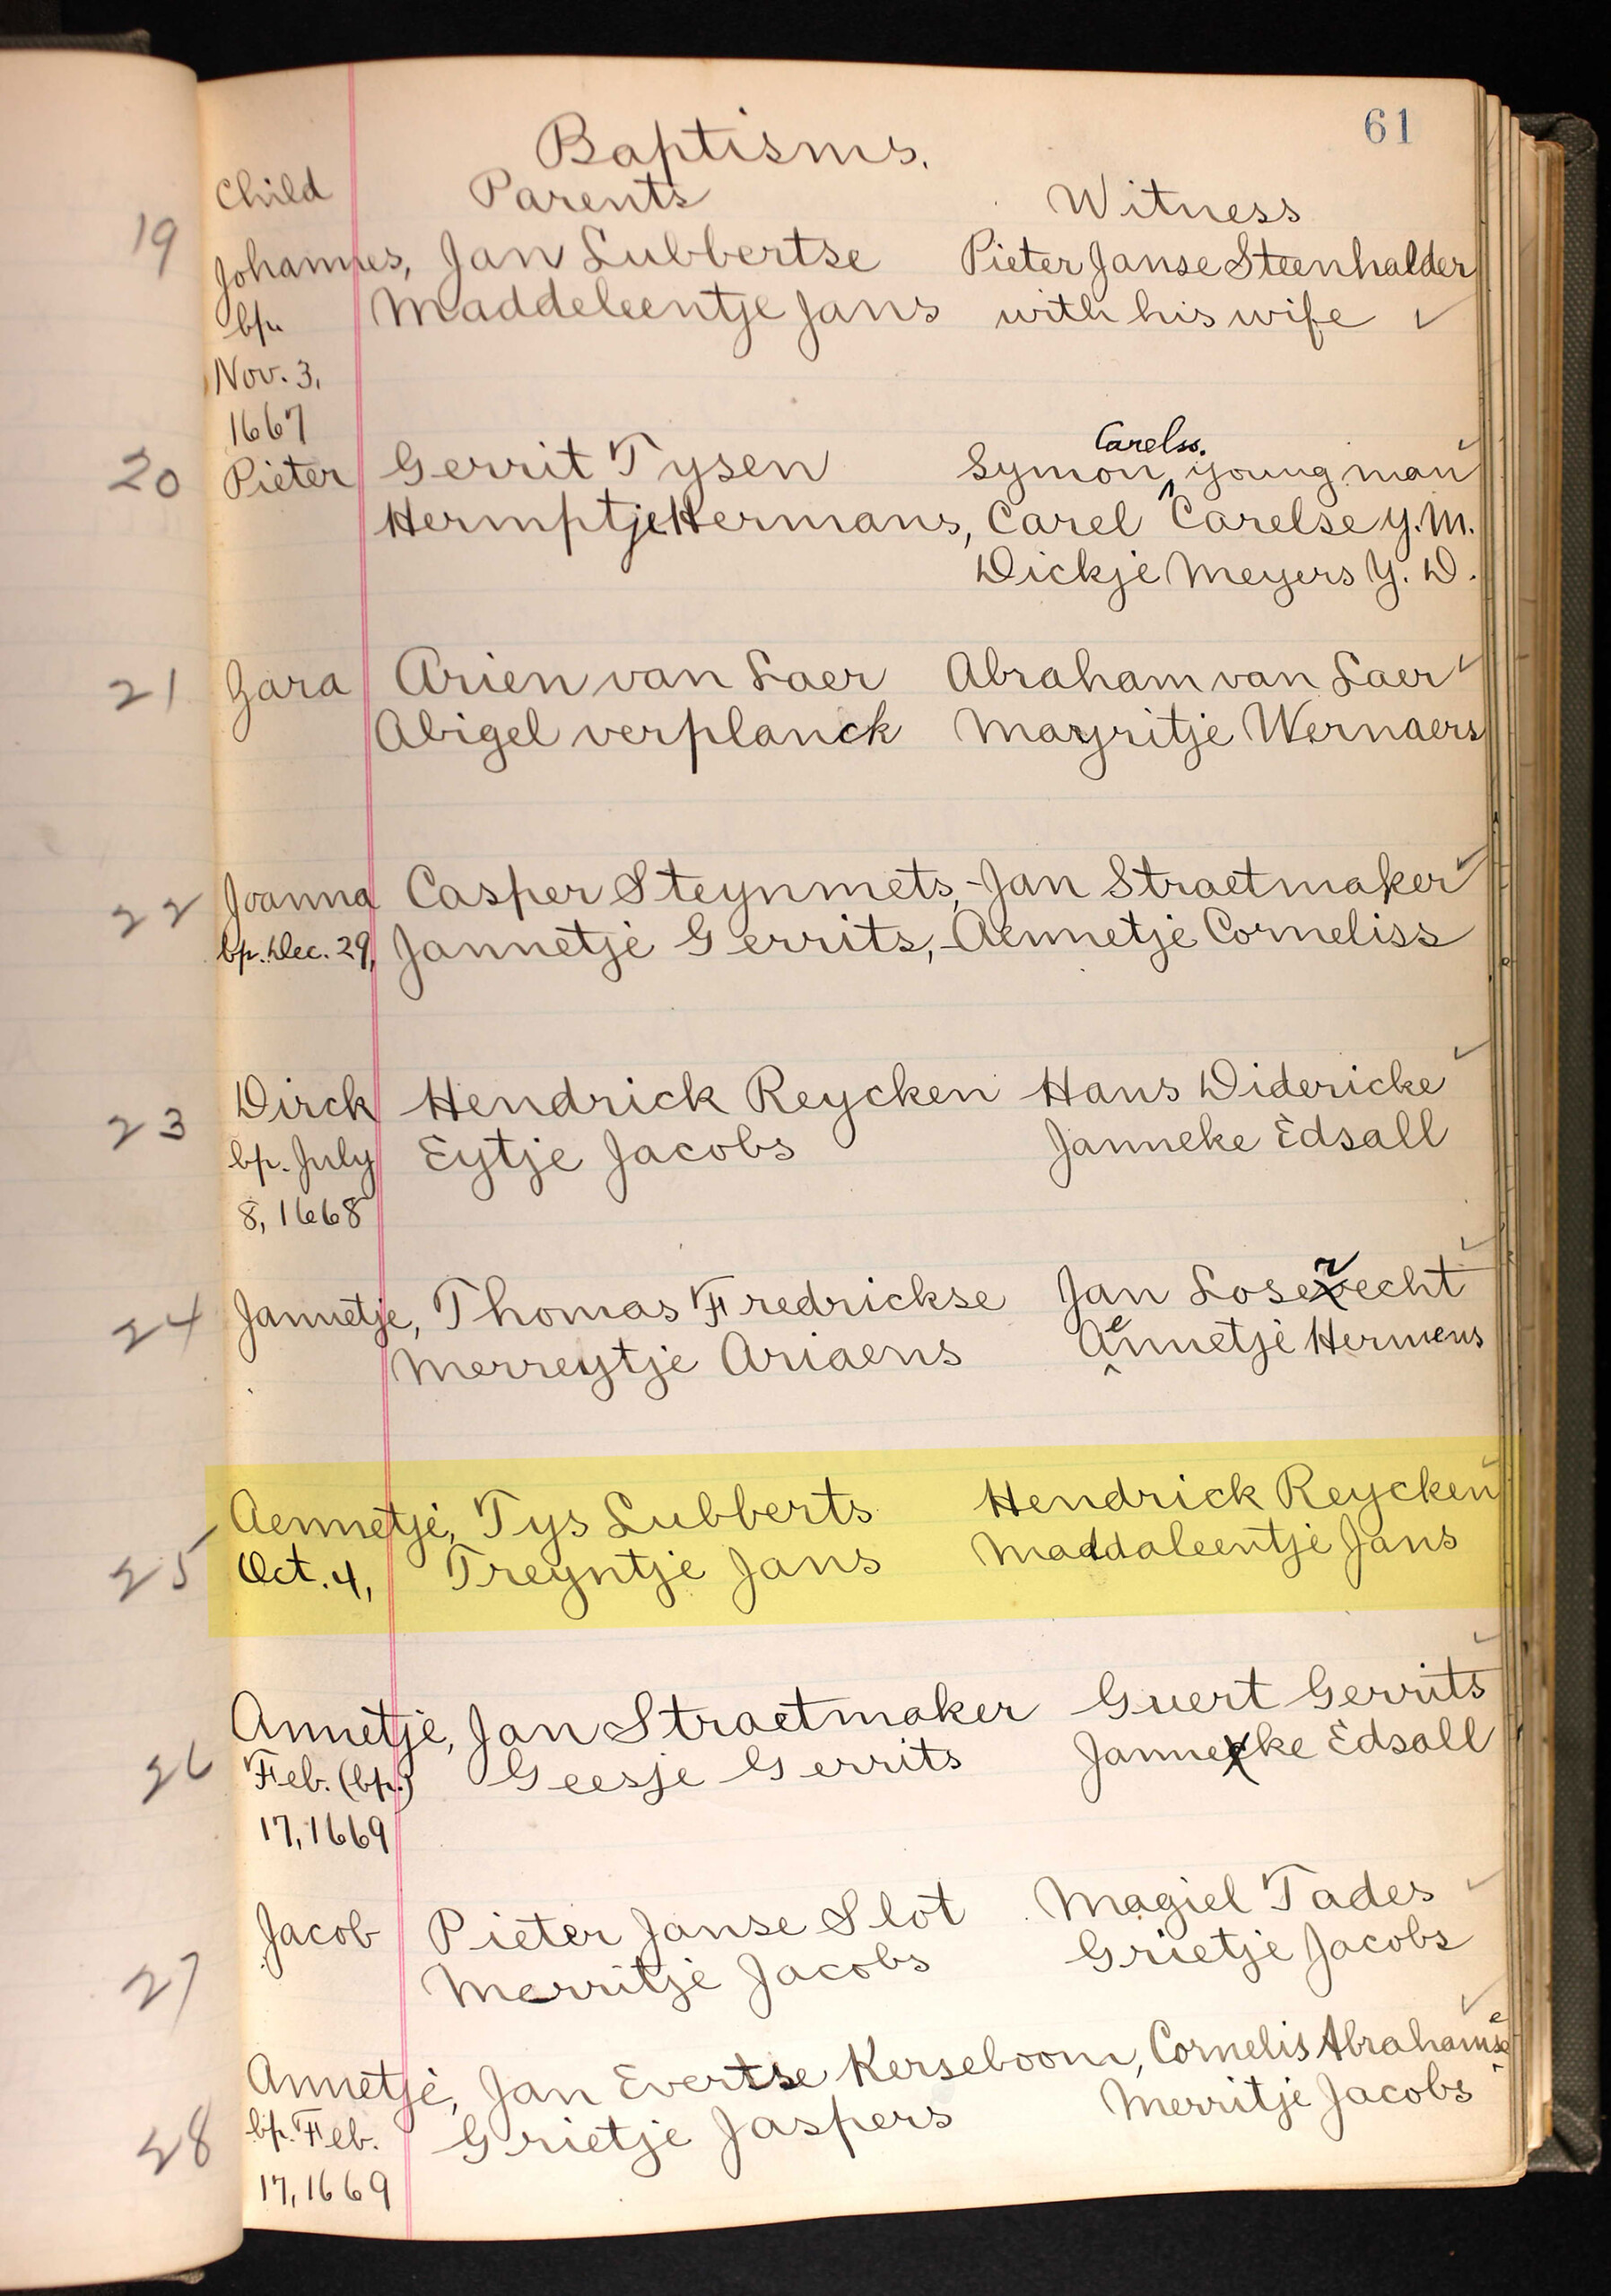 61
Baptisms.
Child Parents Witness
19 Johannes, Jan Lubbertse Pieter Janse Steenhalder
bp. Maddeleentje Jans with his wife ✓
Nov. 3,
1667
Carelss.
20 Pieter Gerrit Tysen Symon ^ young man ✓
Hermptje Hermans, Carel Carelse y.m.
Dickje Meyers y. D.
21 Zara Arien van Laer Abraham van Laer ✓
Abigel verplanck Mayritje Wernaers
22 Joanna Casper Steynmets, - Jan Straetmaker ✓
bp. Dec. 29, Jannetje Gerrits, - Aennetje Corneliss
23 Dirck Hendrick Reycken Hans Didericke ✓
bp. July Eytje Jacobs Janneke Edsall
8, 1668
24 Jannetje, Thomas Fredrickse Jan Loserecht ✓
Merreytje Ariaens Aennetje Hermens
25 Aennetje, Tys Lubberts Hendrick Reycken ✓
Oct. 4, Treyntje Jans Maddaleentje Jans
26 Annetje, Jan Straetmaker Guert Gerrits ✓
Feb. (bp.) Geesje Gerrits Janneke Edsall
17, 1669
27 Jacob Pieter Janse Slot Magiel Tades ✓
Merritje Jacobs Grietje Jacobs
28 Annetje, Jan Evertse Kerseboom, Cornelis Abrahamse ✓
bp. Feb. Grietje Jaspers Merritje Jacobs
17, 1669